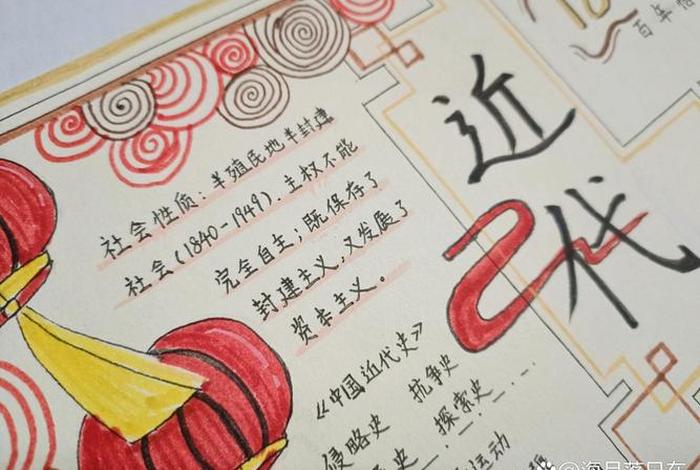 百年
近代
社会性质：半殖民地半封建
社会(1840-1949)．主权不能
完全自主；既保存了
封建主义，又发展了
资本主义。
《中国近代史》
侵略史 抗争史
史 探索史
运动